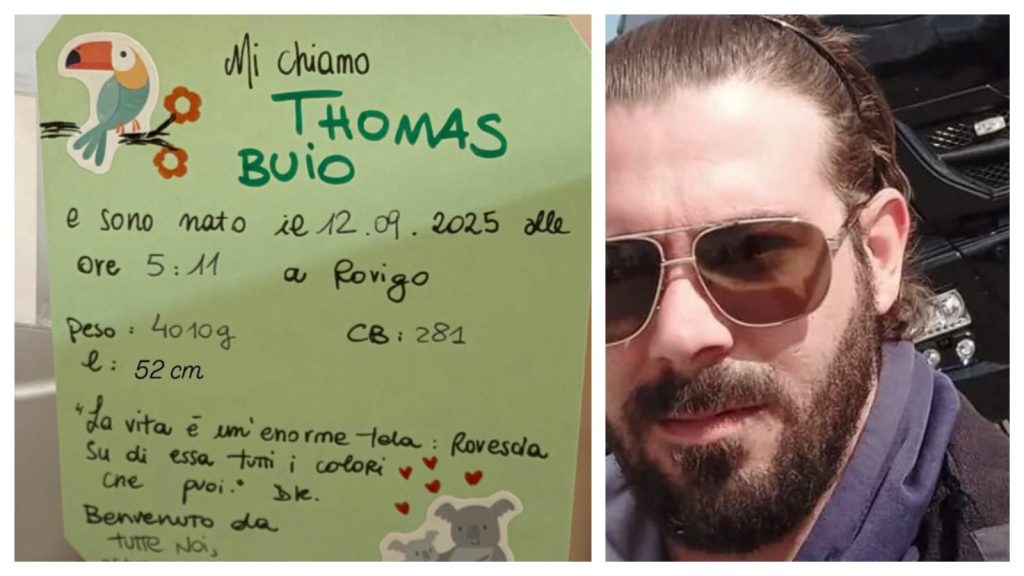 Mi chiamo
THOMAS
BUIO
e sono nato il 12.09.2025 alle
ore 5:11 a Rovigo
Peso: 4010g CB: 281
l: 52 cm
"La vita è un'enorme tela: Rovescia
Su di essa tutti i colori
che puoi." DK.
Benvenuto da
TUTTE NOI,